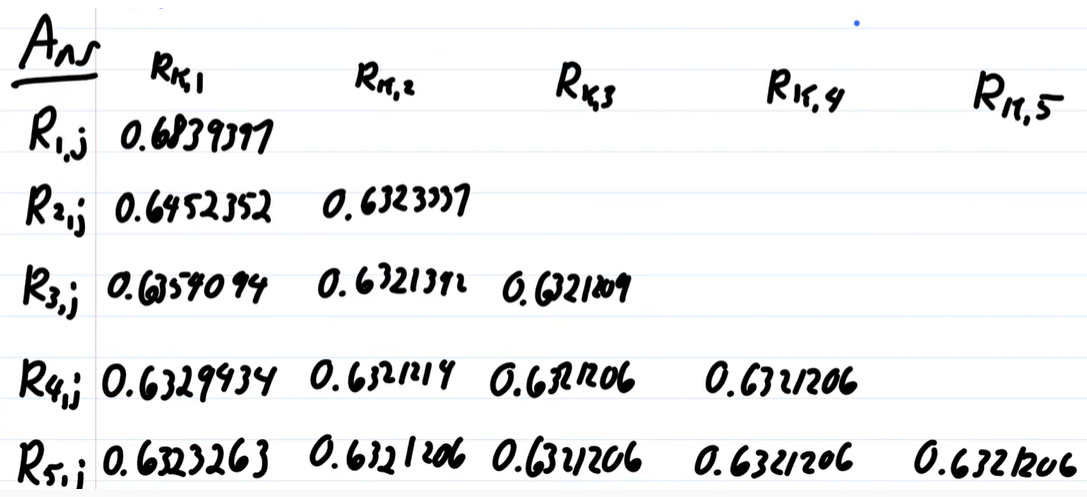 Ans R_{K,1} R_{K,2} R_{K,3} R_{K,4} R_{K,5}
R_{1,j} 0.6839397
R_{2,j} 0.6452352 0.6323337
R_{3,j} 0.6354094 0.6321342 0.6321209
R_{4,j} 0.6329434 0.6321214 0.6321206 0.6321206
R_{5,j} 0.6323263 0.6321206 0.6321206 0.6321206 0.6321206